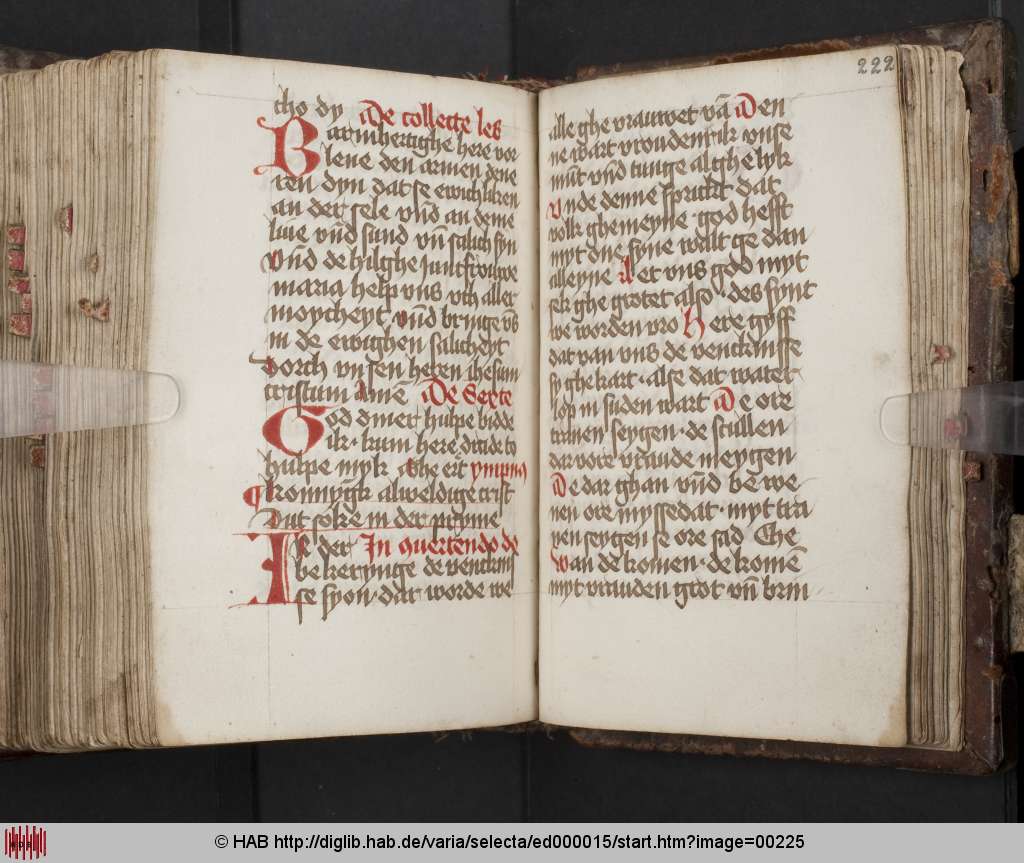 tho dy De collecte les
Barmhertighe here vor
lene den armen dene
ren dyn dat se ewichliken
an der sele vñd an deme
liue vñd sund vñ salich syn
vñd de hilghe juncfrouwe
maria help vns vth aller
moycheyt vñd bringe vs
in de ewighen salicheyt
dorch vnsen heren ihesum
cristum Amē De Sexte
God o myner hulpe bidde
ik· kum here drade to
hulpe myk Ehe ert ympnus
konnyngk alweldige crist
Vut sokē in der pryme
In der In quertendo de
bekerynge de vencknis
se syon· dat worde we
222
alle ghe vrauwet vā Den
ne wart vrouden rik vnse
mūt vñd tunge al ghelyk
vnde denne spricket dat
volk ghemeyne· god hefft
myt one syne walt ge dan
alleyne Let vns god myt
sek ghe grotet also· des synt
we worden vro Here gyff
dat van vns de vencknisse
sy ghe kart· alse dat water
lop in suden wart De ore
tranen seygen· de scullen
dar vore vraude meygen
De dar ghan vñd be we
nen ore myssedat· myt tra
nen seygen se ore sad Ehe
wan dē komen· de komē
myt vrauden grot vñ brin
© HAB http://diglib.hab.de/varia/selecta/ed000015/start.htm?image=00225